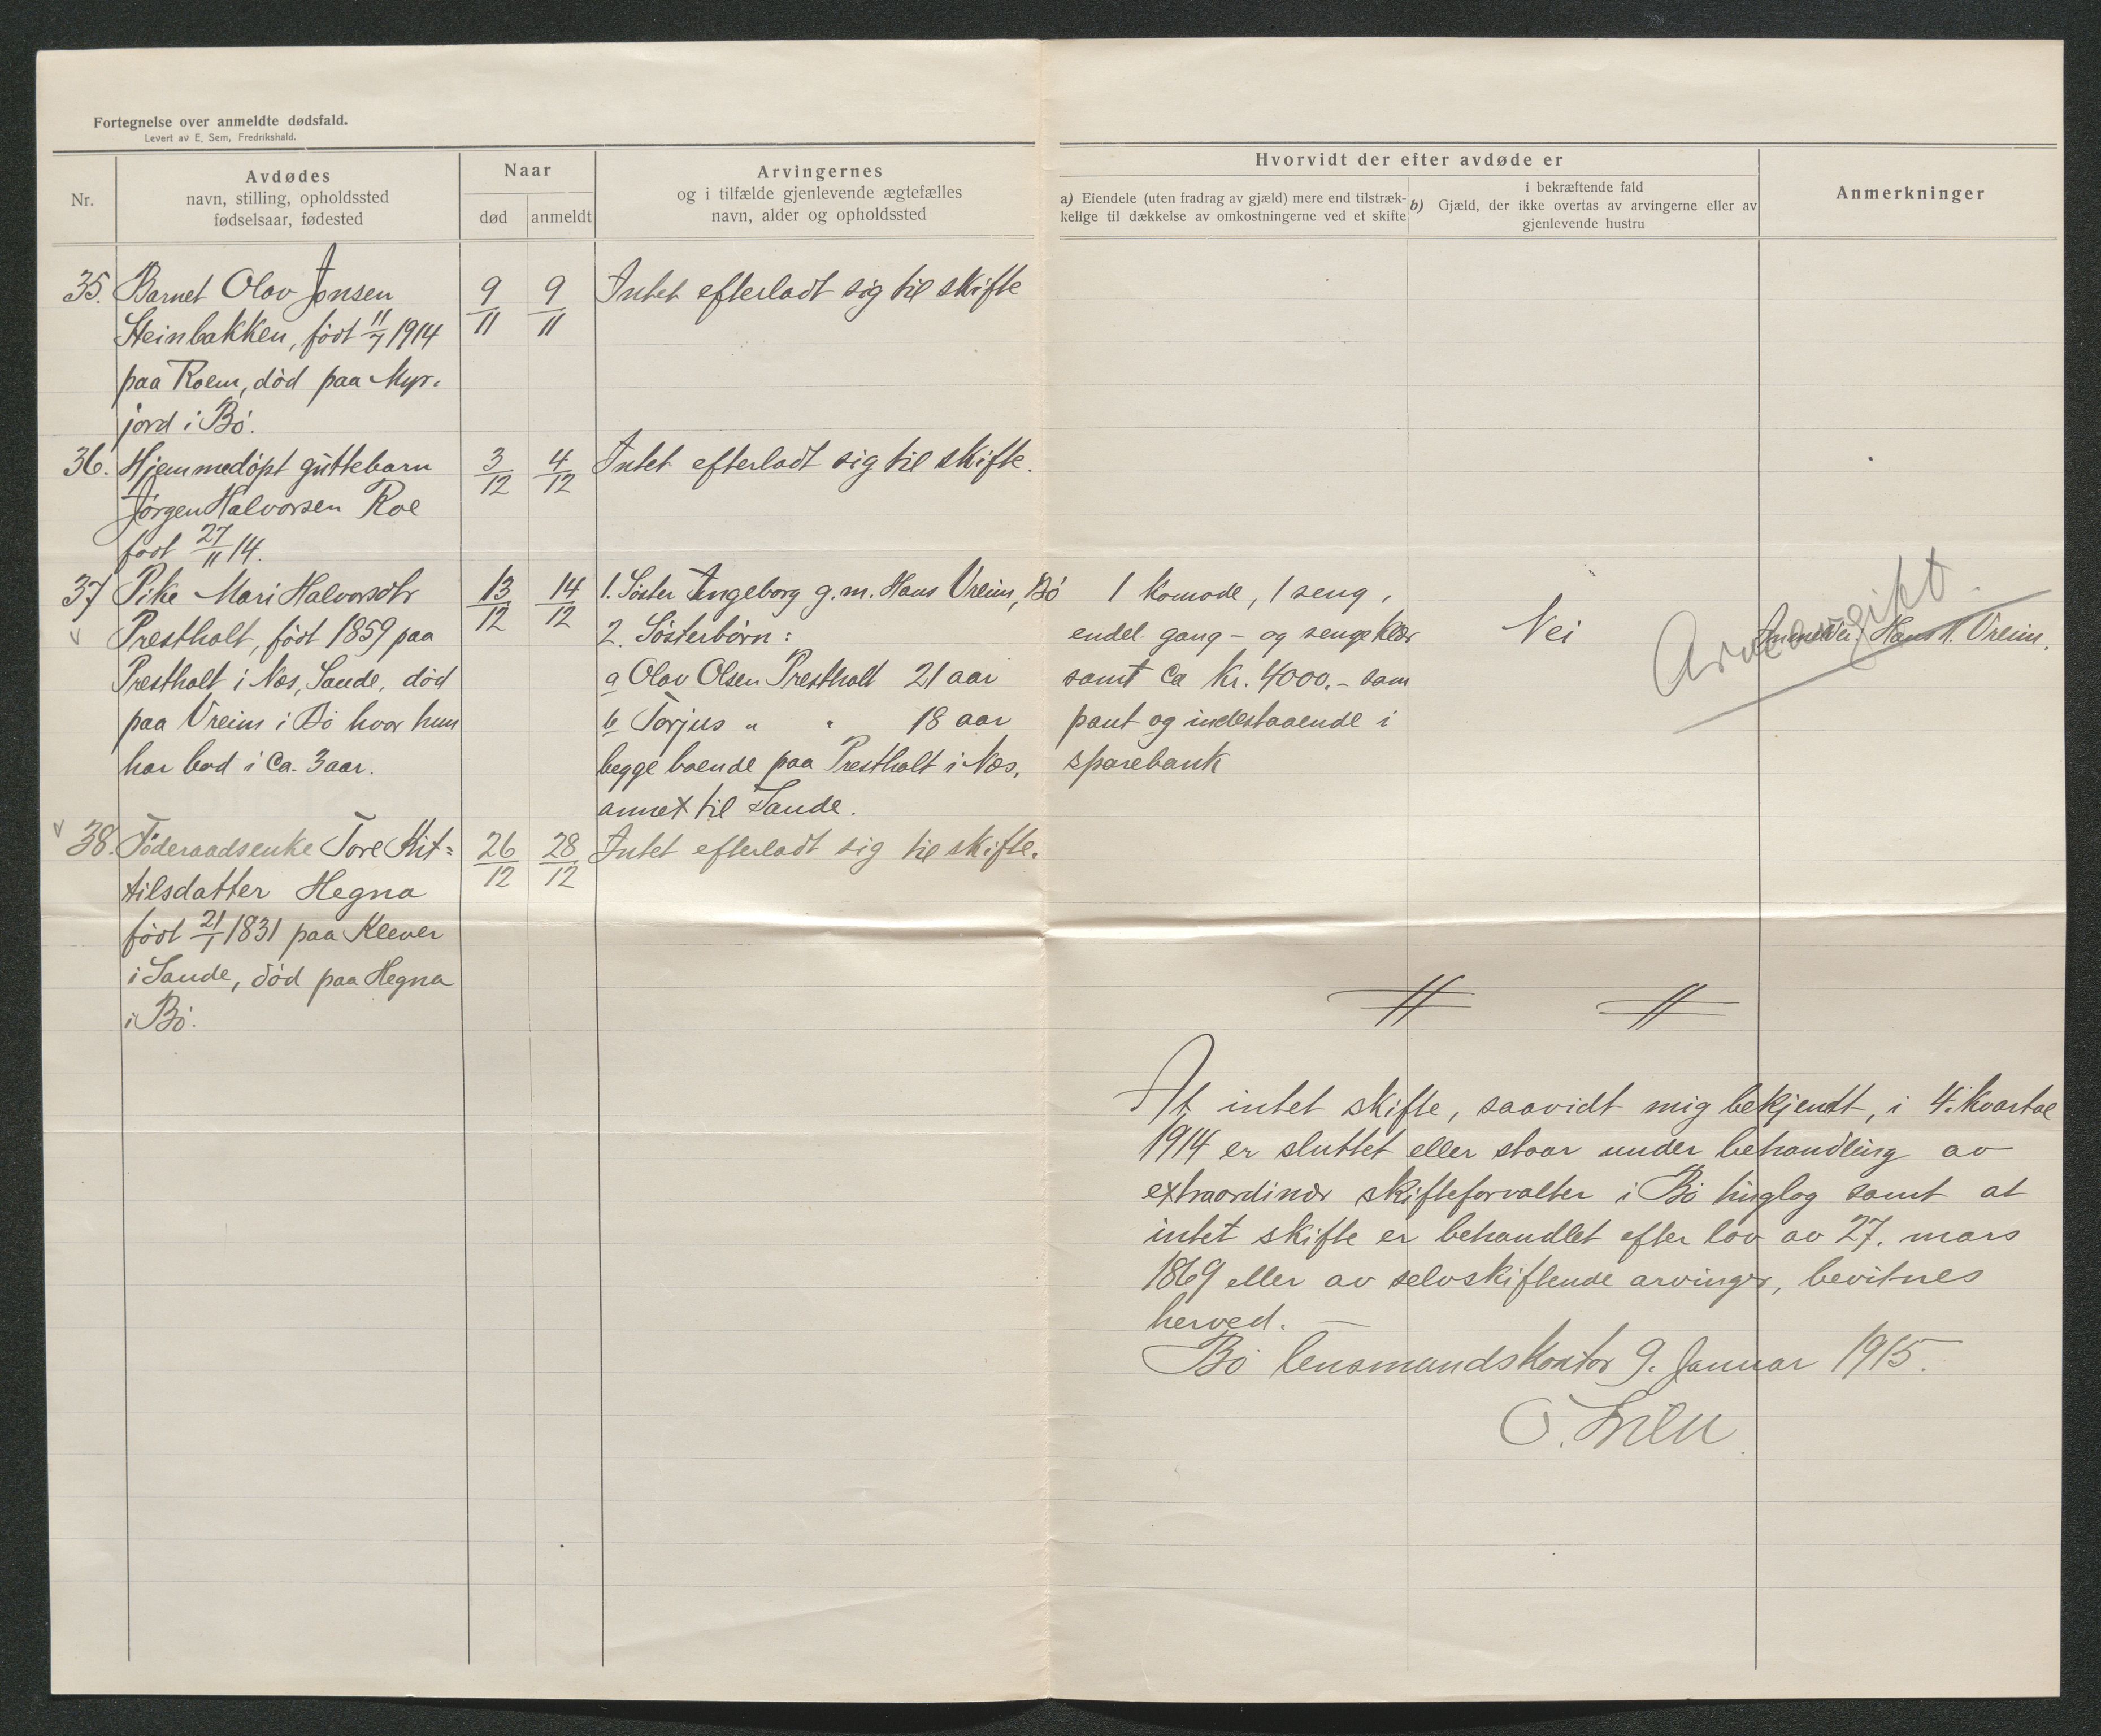 Fortegnelse over anmeldte dødsfald.
Levert av E. Sem, Fredrikshald.
Nr.
Avdødes
navn, stilling, opholdssted
fødselsaar, fødested
Naar
død
anmeldt
Arvingernes
og i tilfælde gjenlevende ægtefælles
navn, alder og opholdssted
Hvorvidt der efter avdøde er
a) Eiendele (uten fradrag av gjæld) mere end tilstræk-
kelige til dækkelse av omkostningerne ved et skifte
i bekræftende fald
b) Gjæld, der ikke overtas av arvingerne eller av
gjenlevende hustru
Anmerkninger
35. Barnet Olav Jonsen
Steinbakken, født 11/7 1914
paa Roem, død paa Myr-
jord i Bø.
9/11
9/11
Intet efterladt sig til skifte
36. Hjemmedøpt guttebarn
Jørgen Halvorsen Roe
født 27/11 14.
3/12
4/12
Intet efterladt sig til skifte.
37 Pike Mari Halvorsdtr
v Prestholt, født 1859 paa
Prestholt i Nes, Saude, død
paa Vreim i Bø hvor hun
har bod i ca. 3 aar.
13/12
14/12
1. Søster Ingeborg g.m. Hans Vreim, Bø
2. Søsterbørn:
a Olav Olsen Prestholt 21 aar
b Torjus " " 18 aar
begge boende paa Prestholt i Nes,
annex til Saude.
1 komode, 1 seng,
endel gang- og sengeklær
samt ca kr. 4000.- som
pant og indestaaende i
sparebank
Nei
Anmelder: Hans H. Vreim.
Arveavgift.
v 38. Føderaadsenke Tore Kit=
tilsdatter Hegna
født 21/1 1831 paa Klever
i Saude, død paa Hegna
i Bø.
26/12
28/12
Intet efterladt sig til skifte.
At intet skifte, saavidt mig bekjendt, i 4. kvartal
1914 er sluttet eller staar under behandling av
extraordinær skifteforvalter i Bø tinglag samt at
intet skifte er behandlet efter lov av 27. mars
1869 eller av selvskiftende arvinger, bevitnes
herved. —
Bø lensmandskontor 9. januar 1915.